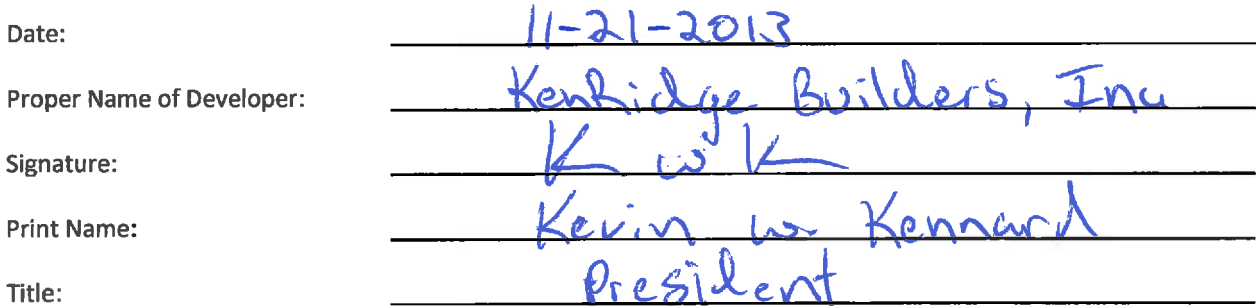 Date: 11-21-2013
Proper Name of Developer: KenRidge Builders, Inc
Signature: K W K
Print Name: Kevin W Kennard
Title: President